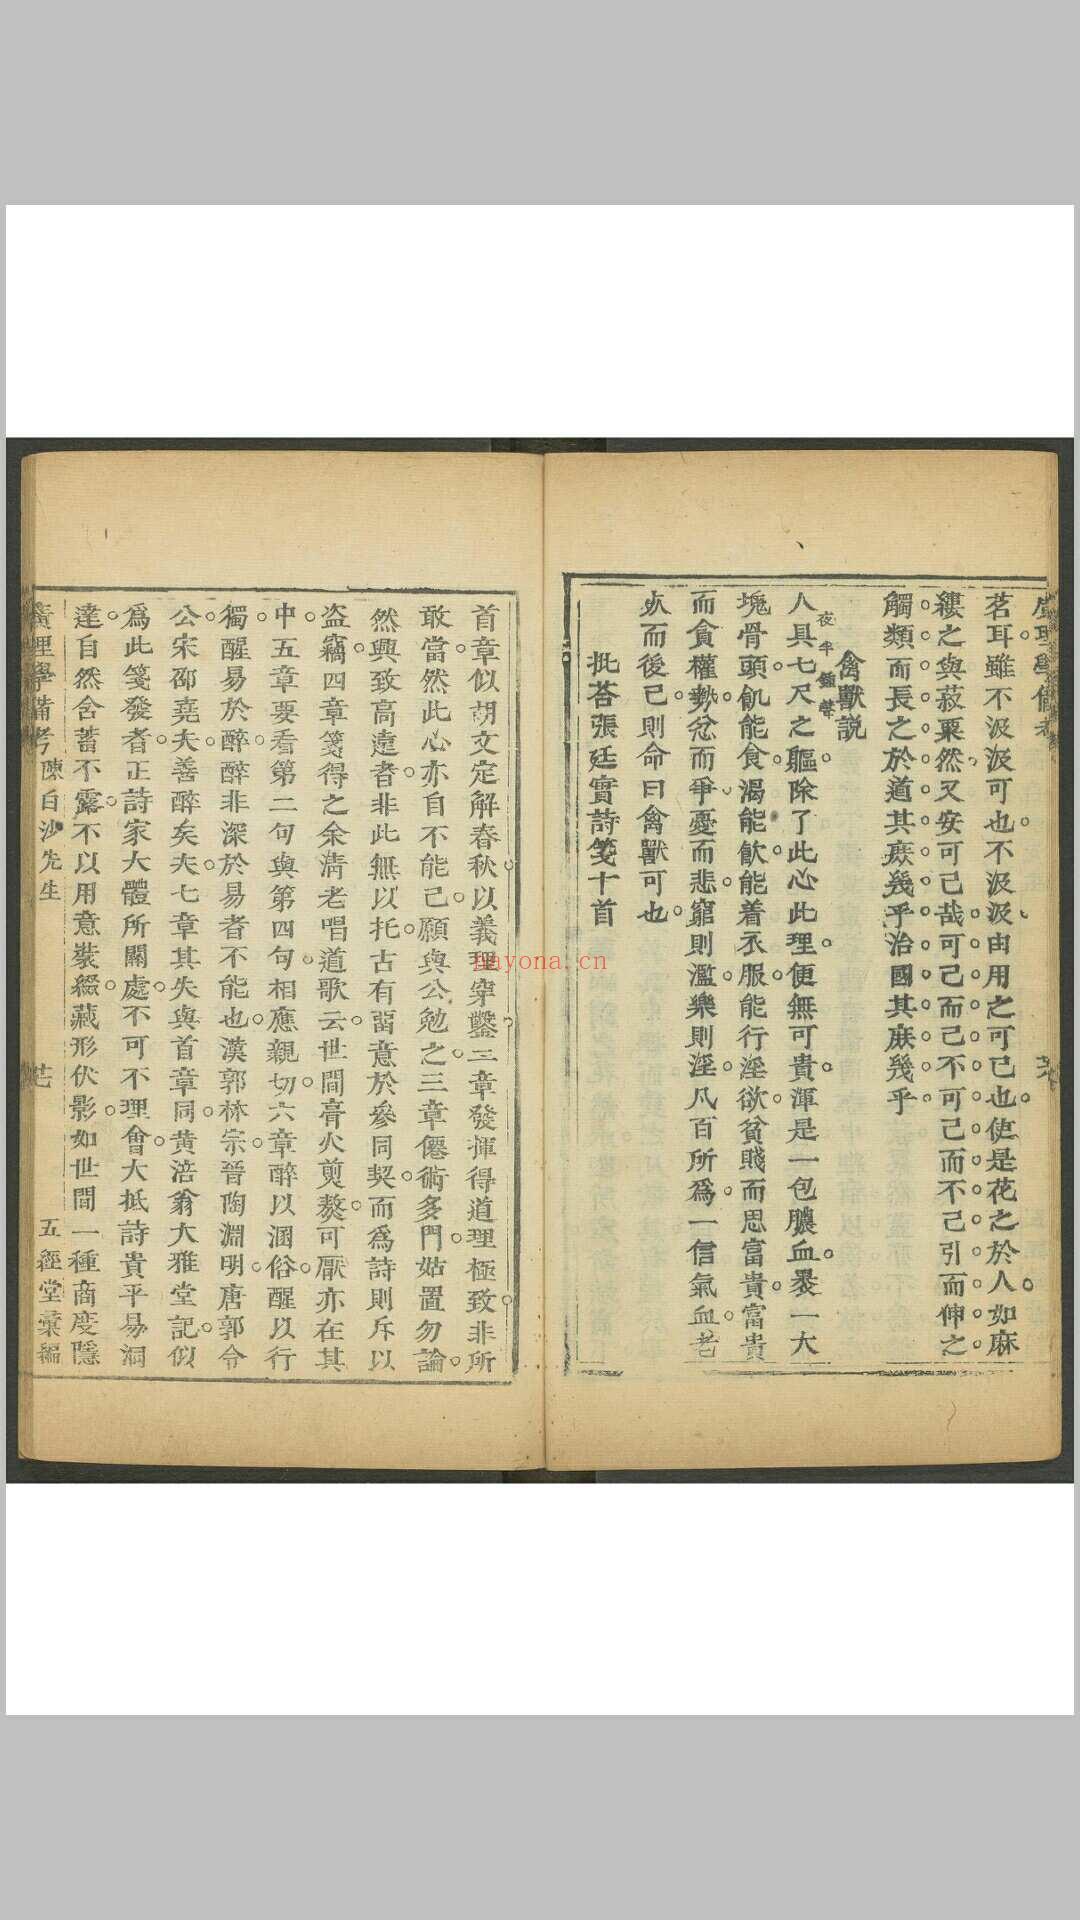 茗耳雖不汲汲可也不汲汲由用之可已也使是花之於人如麻
縷之與菽粟然又安可已哉可已而已不可已而不已引而伸之
觸類而長之於道其庶幾乎治國其庶幾乎
禽獸説
夜半鍾聲
人具七尺之軀除了此心此理便無可貴渾是一包膿血褁一大
塊骨頭飢能食渴能飲能着衣服能行淫欲貧賤而思富貴富貴
而貪權勢忿而爭憂而悲窮則濫樂則淫凡百所爲一信氣血老
死而後已則命曰禽獸可也
批荅張廷實詩箋十首
首章似胡文定解春秋以義理穿鑿三章發揮得道理極致非所
敢當然此心亦自不能已願與公勉之三章僊術多門姑置勿論
然興致高遠者非此無以托古有留意於參同契而爲詩則斥以
盗竊四章箋得之余清老唱道歌云世間膏火剪熬可厭亦在其
中五章要看第二句與第四句相應親切六章醉以涵俗醒以行
獨醒易於醉醉非深於易者不能也漢郭林宗晉陶淵明唐郭令
公宋邵堯夫善醉矣夫七章其失與首章同黄涪翁大雅堂記似
爲此箋發者正詩家大體所關處不可不理會大抵詩貴平易洞
達自然含蓄不露不以用意裝綴藏形伏影如世間一種商度隱
廣理學備考 陳白沙先生 五經堂彙編
nayona.cn